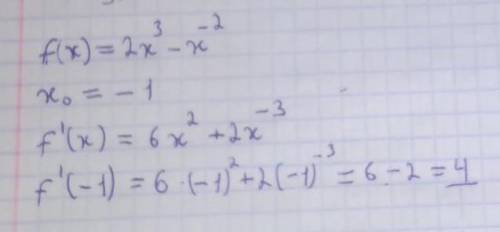 f(x) = 2x³ - x⁻²
x₀ = -1
f'(x) = 6x² + 2x⁻³
f'(-1) = 6 · (-1)² + 2(-1)⁻³ = 6 - 2 = 4